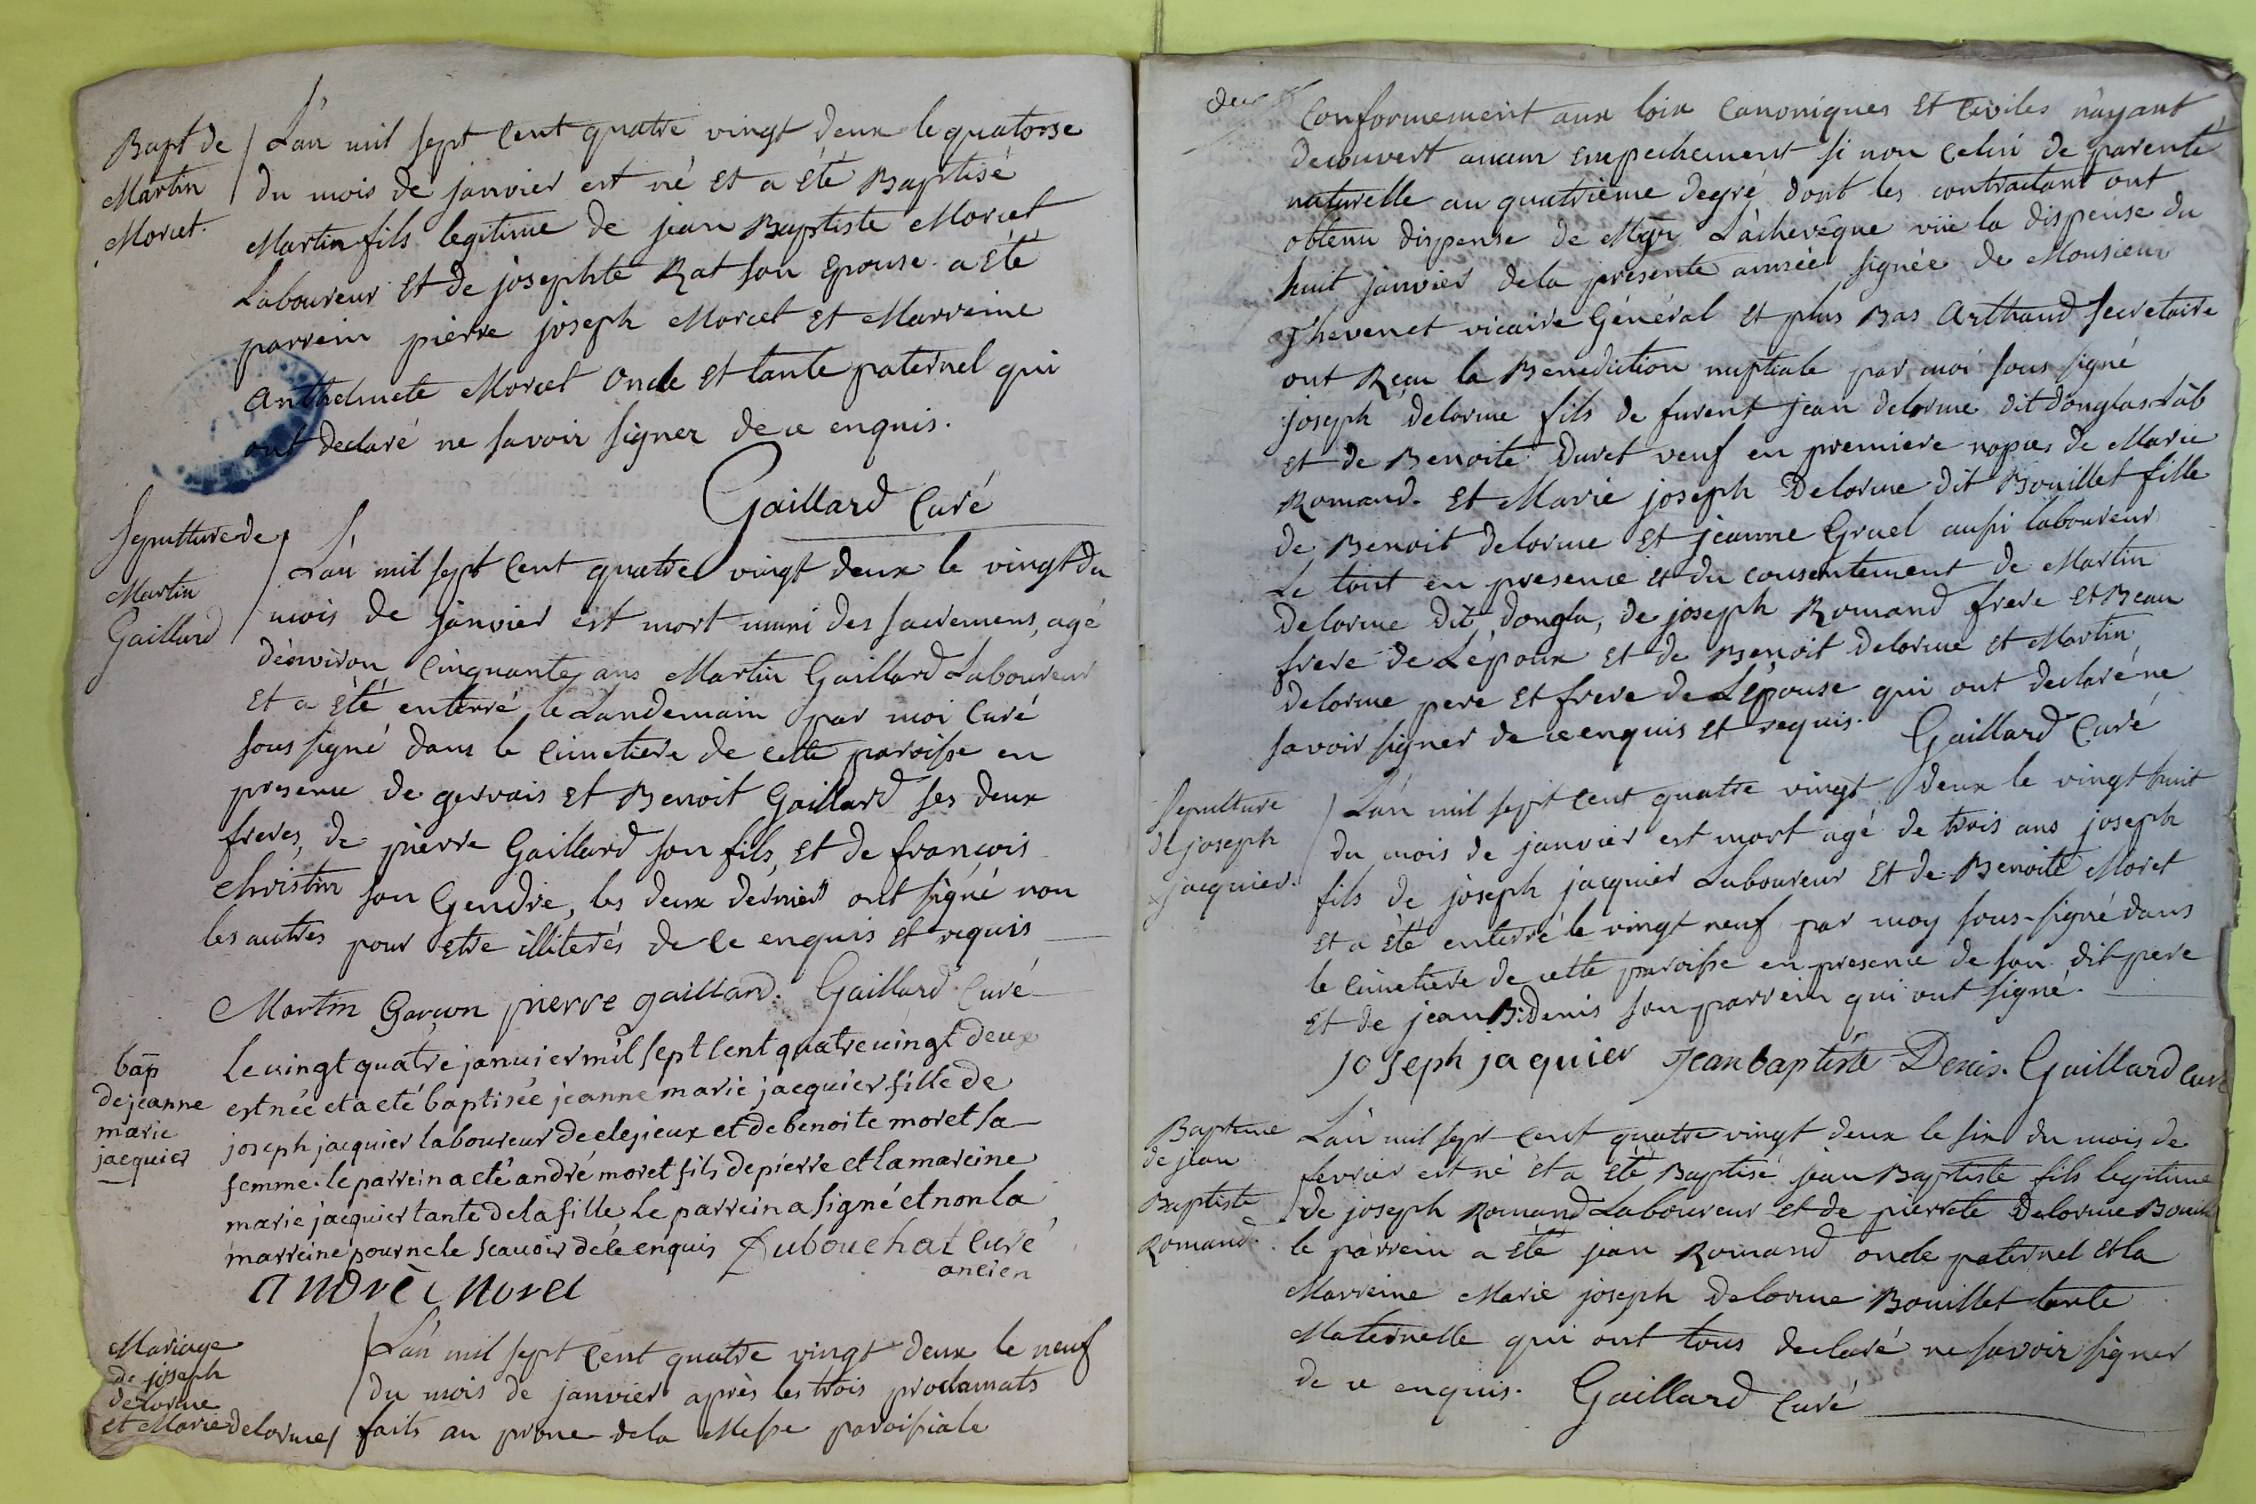 Bapt de
Martin
Morcet.
L'an mil sept cent quatre vingt deux le quatorse
du mois de janvier est né et a été Baptisé
Martin fils legitime de jean Baptiste Morcet
Laboureur et de josephte Rat son Epouse a été
parrein pierre joseph Morcet et Marreine
Anthelmete Morcet oncle et tante paternel qui
ont declaré ne savoir signer de ce enquis.
Gaillard Curé
Sepultture de
Martin
Gaillard
L'an mil sept cent quatre vingt deux le vingt du
mois de janvier est mort muni des sacremens, agé
d'environ cinquante ans Martin Gaillard Laboureur
et a été enterré le Landemain par moi Curé
sous signé dans le cimetiere de cette paroisse en
presence de gervais et Benoit Gaillard ses deux
freres, de pierre Gaillard son fils, et de francois
Christin son Gendre, les deux derniers ont signé non
les autres pour etre illiterés de ce enquis et requis
Martin Garçon pierre gaillard. Gaillard Curé
bap
de jeanne
marie
jacquier
le vingt quatre janvier mil sept cent quatre vingt deux
est née et a eté baptisée jeanne marie jacquier fille de
joseph jacquier laboureur de elezieux et de benoite moret sa
femme. le parrein a eté andré moret fils de pierre et la mareine
marie jacquier tante de la fille, le parrein a signé et non la
marreine pour ne le scavoir de ce enquis Dubouchat Curé
ancien
andrè Moret
Mariage
de joseph
delorme
et Marie delorme
L'an mil sept cent quatre vingt deux le neuf
du mois de janvier après les trois proclamats
faits au prone de la Messe paroissiale
deux
Conformement aux loix Canoniques et Civiles n'ayant
decouvert aucun empechement si non celui de parenté
naturelle au quatrième degré dont les contractant ont
obtenu dispense de Mgr L'achevêque vüe la dispense du
huit janvier de la presente année signée de Monsieur
Thevenet vicaire Général et plus Bas Arthaud secretaire
ont Reçu la Benediction nuptiale par moi sous signé
joseph delorme fils de furent jean delorme dit Donglas Lab
et de Benoite Duret veuf en premiere nopces de Marie
Romand. et Marie joseph Delorme dit Bouillet fille
de Benoit delorme et jeanne Gruel aussi laboureur
Le tout en presence et du consentement de Martin
delorme dit dongla, de joseph Romand frere et Beau
frere de L'époux et de Benoit delorme et Martin
delorme pere et frere de L'épouse qui ont declaré ne
savoir signer de ce enquis et requis. Gaillard Curé
Sepulture
de joseph
jacquier.
L'an mil sept cent quatre vingt deux le vingt huit
du mois de janvier est mort agé de trois ans joseph
fils de joseph jacquier Laboureur et de Benoite Moret
et a été enterré le vingt neuf par moy sous-signé dans
le cimetiere de cette paroisse en presence de son dit pere
et de jean B. Denis son parrein qui ont signé.
joseph jaquier Jean baptiste Denis. Gaillard curé
Bapteme
de jean
Baptiste
Romand.
L'an mil sept cent quatre vingt deux le six du mois de
fevrier est né et a été Baptisé jean Baptiste fils legitime
de joseph Romand Laboureur et de pierrete Delorme Bouil
le parrein a été jean Romand oncle paternel et la
Marreine Marie joseph Delorme Bouillet tante
Maternelle qui ont tous declaré ne savoir signer
de ce enquis. Gaillard Curé